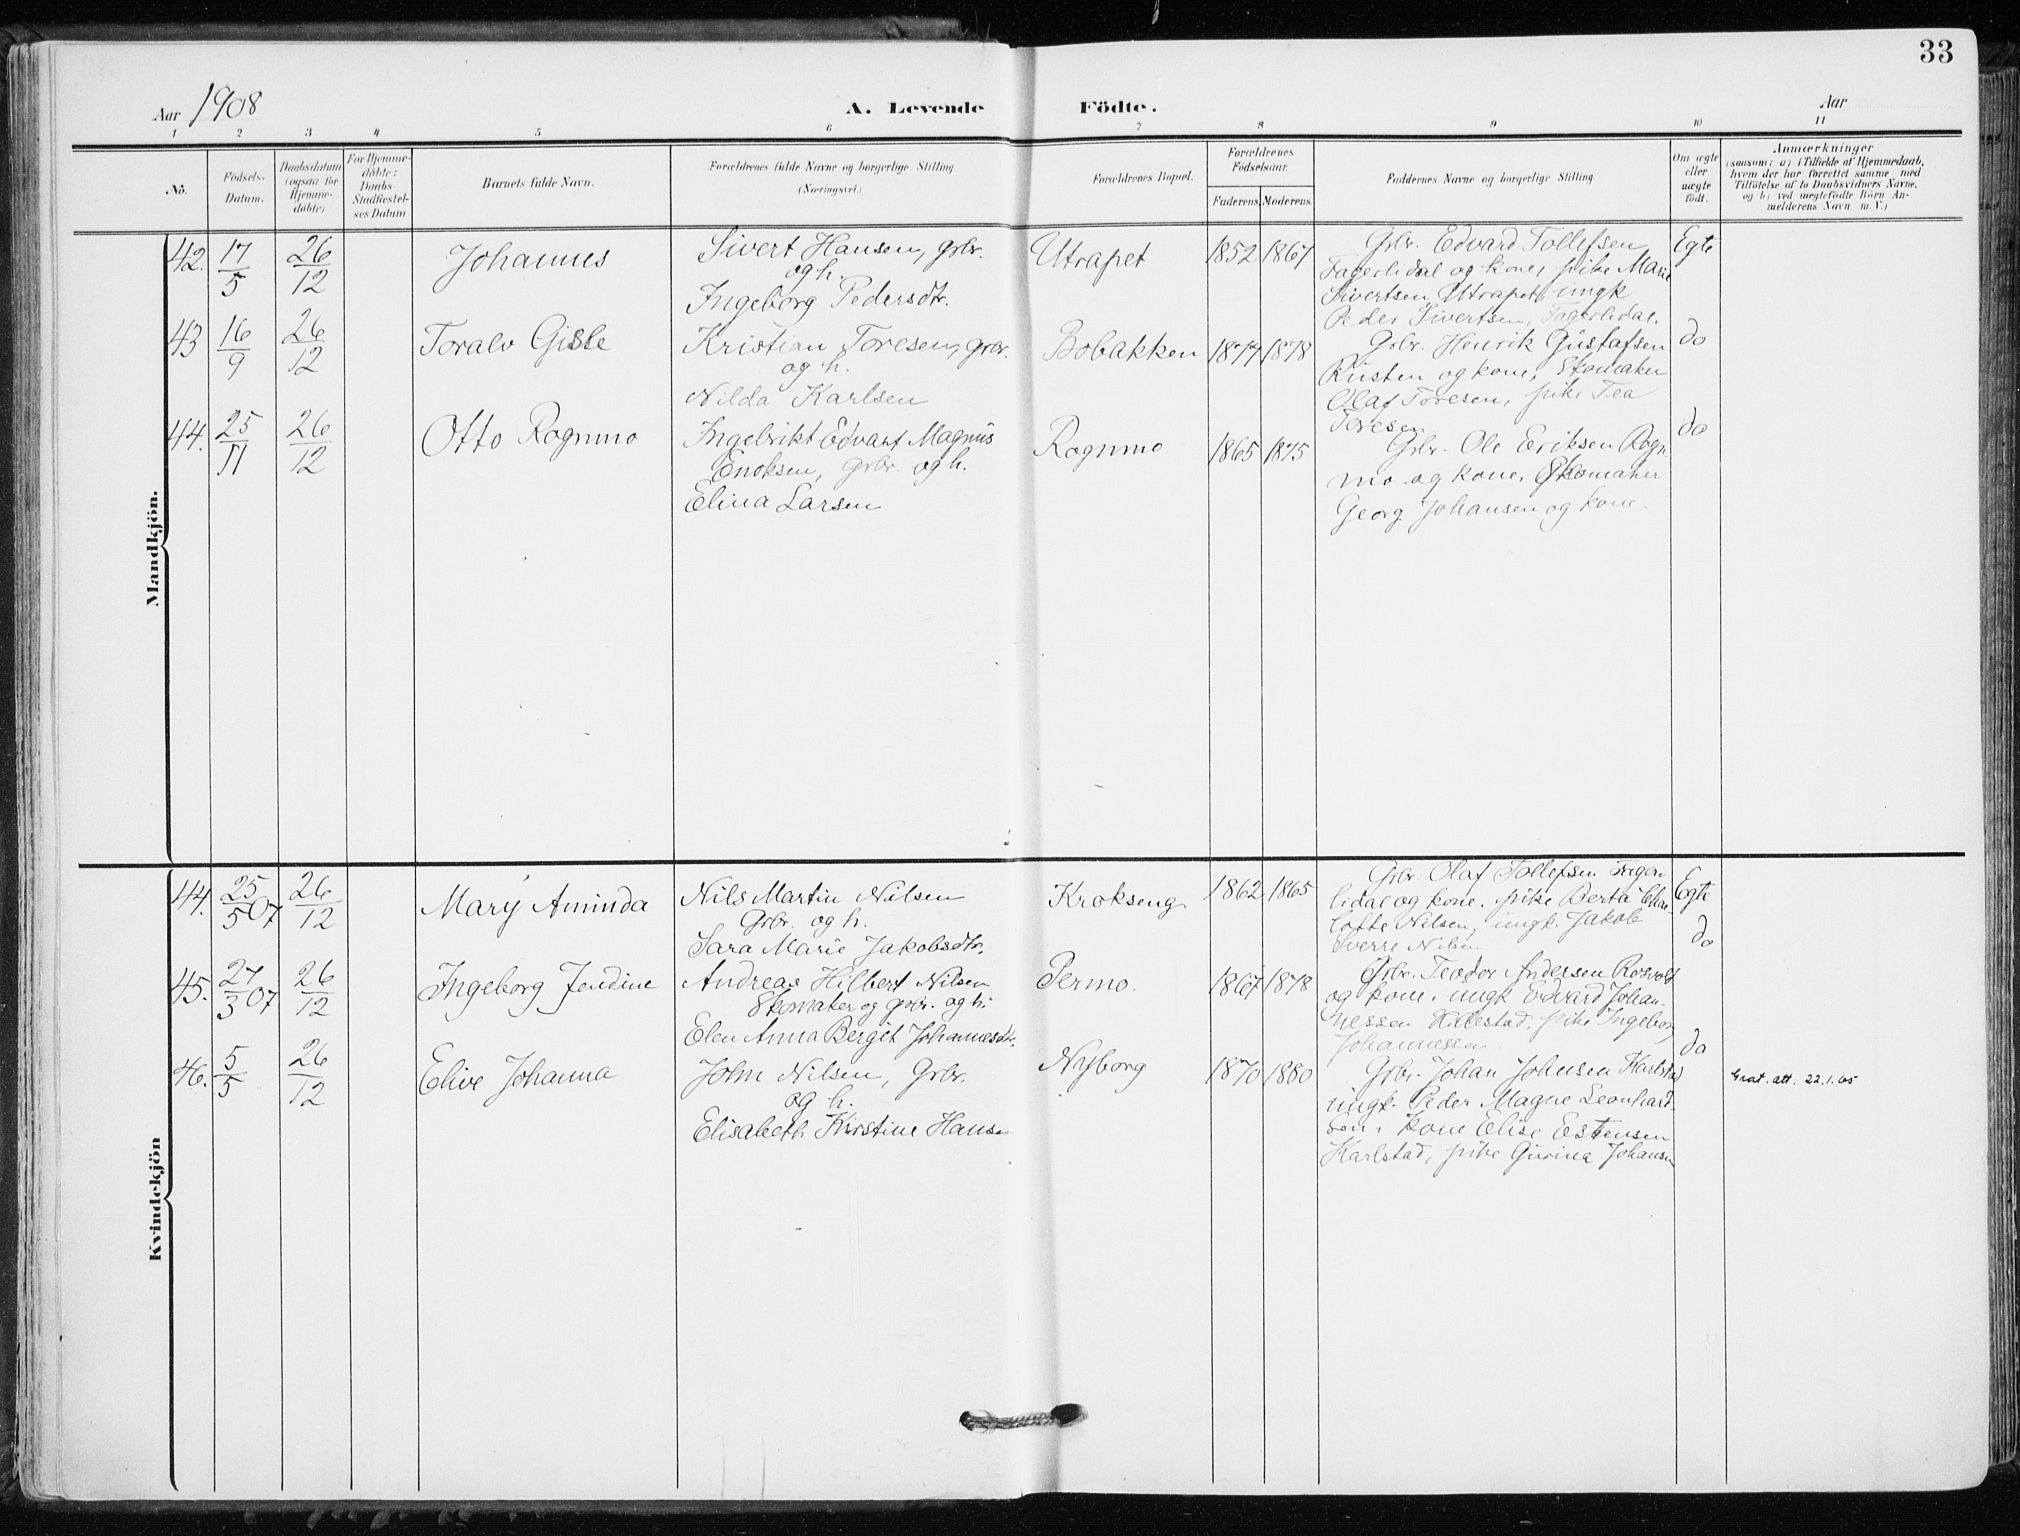 33
Aar 1908
A. Levende Födte.
Aar
1 2 3 4 5 6 7 8 9 10 11
No.
Födsels-
Datum.
Daabsdatum
(ogsaa for
Hjemme-
döbte)
For Hjemme-
döbte:
Daabs-
Stadfæstel-
ses Datum
Barnets fulde Navn.
Forældrenes fulde Navne og borgerlige Stilling
(Næringsvei.)
Forældrenes Bopæl.
Forældrenes
Födselsaar.
Faderens. Moderens.
Faddernes Navne og borgerlige Stilling.
Om ægte
eller
uægte
født.
Anmærkninger
(saasom: a) i Tilfælde af Hjemmedaab,
hvem der har forrettet samme med
Tilföielse af to Daabsvidners Navne,
og b) ved uægtefödte Börn An-
melderens Navn m. V.)
Mandkjön.
42. 17/5 26/12 Johannes
Sivert Hansen, grbr.
og h.
Ingeborg Pedersdtr.
Utrapet 1852 1867
Grbr. Edvard Tollefsen
Fagerlidal og kone, pike Marie
Sivertsen Utrapet, ungk
Peder Sivertsen, Fagerlidal.
Egte
43 16/9 26/12 Toralv Gisle
Kristian Toresen, grbr.
og h.
Nilda Karlsen
Bobakken 1877 1878
Grbr. Henrik Gustafsen
Kusten og kone, Skomaker
Olaf Toresen, pike Tea
Toresen
do
44. 25/11 26/12 Otto Rognmo
Ingebrikt Edvart Magnus
Enoksen, grbr. og h.
Elina Larsen
Rognmo 1865 1875
Grbr. Ole Eriksen Rogn
mo og kone, Skomaker
Georg Johansen og kone.
do
Kvindekjön
44. 25/5 07 26/12 Mary Aminda
Nils Martin Nilsen
Grbr. og h.
Sara Marie Jakobsdtr.
Krokseng 1862 1865
Grbr. Olaf Tollefsen Fager
lidal og kone, pike Berta Char-
lotte Nilsen, ungk. Jakob
Sverre Nilsen
Egte
45. 27/3 07 26/12 Ingeborg Jendine
Andreas Hilbert Nilsen
Skomaker og grbr. og h.
Elen Anna Berget Johannesdtr.
Permo. 1867 1878
Grbr. Teodor Andersen Rosvold
og kone, ungk Edvard Johan-
nessen Hillestad, pike Ingeborg
Johannessen.
do
46. 5/5 26/12 Elive Johanna
John Nilsen, Grbr.
og h.
Elisabeth Kirstine Hansen
Nyborg 1870 1880
Grbr. Johan Johnsen Karlstad
ungk. Peder Magne Leonhard-
sen, kone Elise Estensen
Karlstad, pike Gurina Johansen
do
Grat. att. 22.1.65